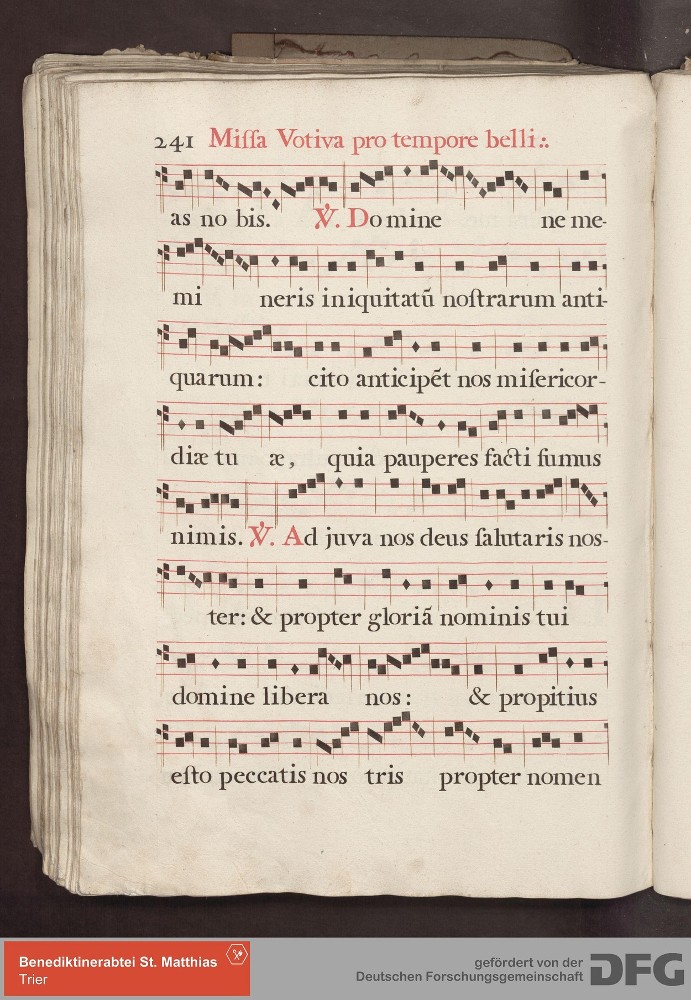 241 Miſſa Votiva pro tempore belli:.
as no bis. ℣. Do mine ne me-
mi neris iniquitatū noſtrarum anti-
quarum: cito anticipēt nos miſericor-
diæ tu æ, quia pauperes facti ſumus
nimis. ℣. Ad juva nos deus ſalutaris nos-
ter: & propter gloriā nominis tui
domine libera nos: & propitius
eſto peccatis nos tris propter nomen
Benediktinerabtei St. Matthias
Trier
gefördert von der
Deutschen Forschungsgemeinschaft
DFG